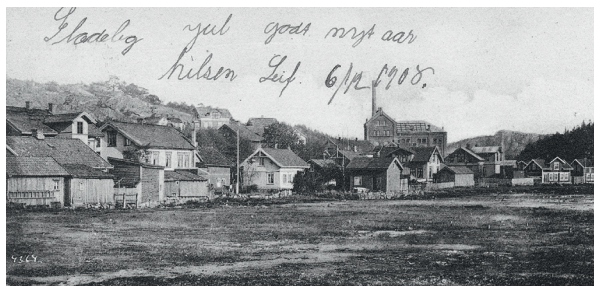 Glædelig jul godt nyt aar
hilsen Leif. 6/12 1908.
4364